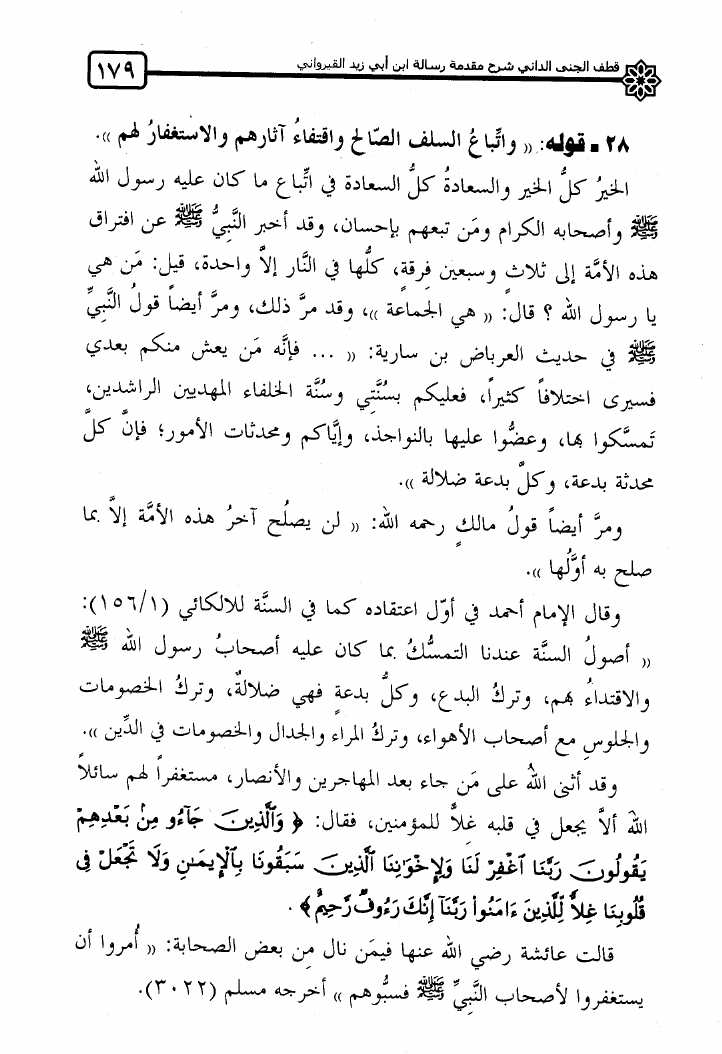 قطف الجنى الداني شرح مقدمة رسالة ابن أبي زيد القيرواني
١٧٩
٢٨ ـ قوله: « واتِّباعُ السلف الصّالح واقتفاءُ آثارهم والاستغفارُ لهم ».
الخيرُ كلُّ الخير والسعادةُ كلُّ السعادة في اتِّباع ما كان عليه رسول الله
ﷺ وأصحابه الكرام ومَن تبعهم بإحسان، وقد أخبر النَّبِيُّ ﷺ عن افتراق
هذه الأمَّة إلى ثلاثٍ وسبعين فِرقةٍ، كلُّها في النَّار إلاَّ واحدة، قيل: مَن هي
يا رسول الله ؟ قال: « هي الجماعة »، وقد مرَّ ذلك، ومرَّ أيضاً قولُ النَّبِيِّ
ﷺ في حديث العرباض بن سارية: « ... فإنَّه مَن يعش منكم بعدي
فسيرى اختلافاً كثيراً، فعليكم بسُنَّتِي وسُنَّة الخلفاء المهديين الراشدين،
تَمسَّكوا بها، وعضُّوا عليها بالنواجذ، وإيَّاكم ومحدثات الأمور؛ فإنَّ كلَّ
محدثة بدعة، وكلَّ بدعة ضلالة ».
ومرَّ أيضاً قولُ مالكٍ رحمه الله: « لن يصلُح آخرُ هذه الأمَّة إلاَّ بما
صلح به أوَّلُها ».
وقال الإمام أحمد في أوّل اعتقاده كما في السنَّة للالكائي (١/١٥٦):
« أصولُ السنَّة عندنا التمسُّكُ بما كان عليه أصحابُ رسول الله ﷺ
والاقتداءُ بهم، وتركُ البدع، وكلُّ بدعةٍ فهي ضلالةٌ، وتركُ الخصومات
والجلوسِ مع أصحاب الأهواء، وتركُ المراء والجدال والخصومات في الدِّين ».
وقد أثنى اللهُ على مَن جاء بعد المهاجرين والأنصار، مستغفراً لهم سائلاً
اللهَ ألاَّ يجعل في قلبه غِلاًّ للمؤمنين، فقال: ﴿ وَٱلَّذِينَ جَآءُو مِنۢ بَعْدِهِمْ
يَقُولُونَ رَبَّنَا ٱغْفِرْ لَنَا وَلِإِخْوَٰنِنَا ٱلَّذِينَ سَبَقُونَا بِٱلْإِيمَٰنِ وَلَا تَجْعَلْ فِى
قُلُوبِنَا غِلًّا لِّلَّذِينَ ءَامَنُوا۟ رَبَّنَآ إِنَّكَ رَءُوفٌ رَّحِيمٌ ﴾ .
قالت عائشة رضي الله عنها فيمَن نال مِن بعض الصحابة: « أُمروا أن
يستغفروا لأصحاب النَّبِيِّ ﷺ فسبُّوهم » أخرجه مسلم (٣٠٢٢).